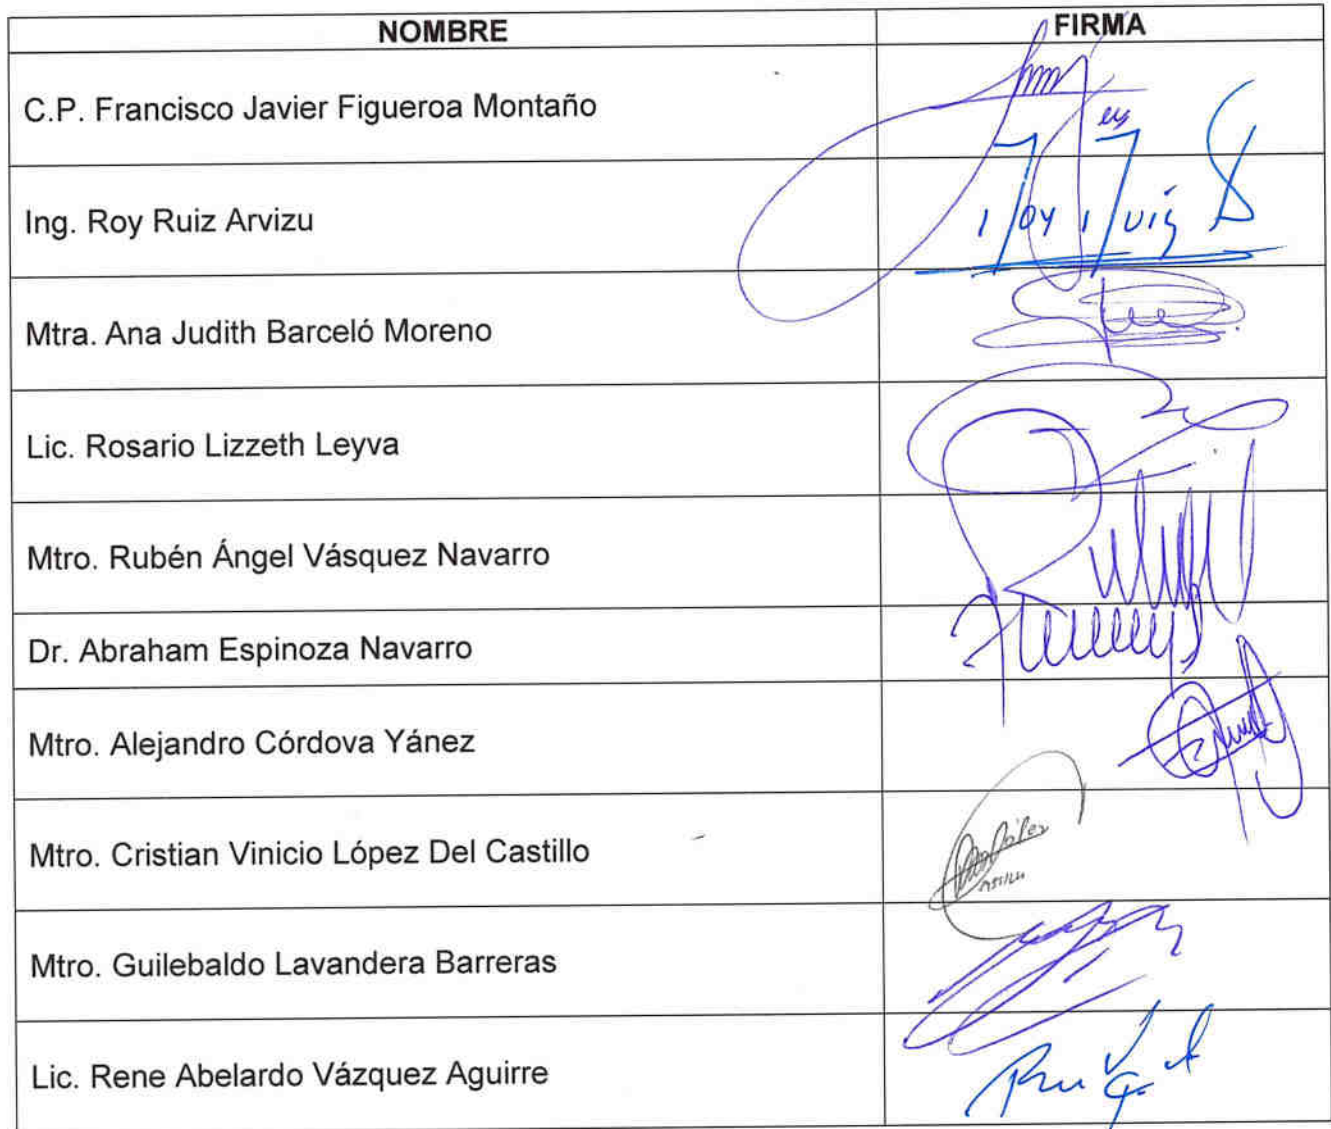 NOMBRE FIRMA
C.P. Francisco Javier Figueroa Montaño
Ing. Roy Ruiz Arvizu
Mtra. Ana Judith Barceló Moreno
Lic. Rosario Lizzeth Leyva
Mtro. Rubén Ángel Vásquez Navarro
Dr. Abraham Espinoza Navarro
Mtro. Alejandro Córdova Yánez
Mtro. Cristian Vinicio López Del Castillo
Mtro. Guilebaldo Lavandera Barreras
Lic. Rene Abelardo Vázquez Aguirre